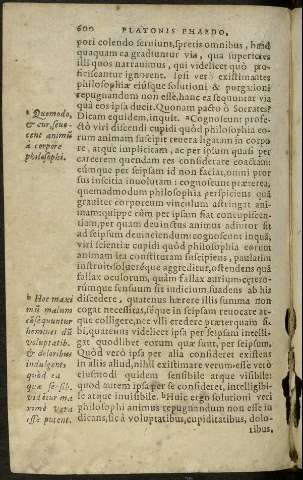 600 PLATONIS PHAEDO,
pori colendo seruiunt, spretis omnibus, haud
quaquam ea gradiuntur via, qua superiores
illi quos narrauimus, qui videlicet quò pro-
ficiscantur ignorent. Ipsi verò existimantes
philosophiæ eiúsque solutioni & purgationi
repugnandum non esse, hanc ea sequuntur via
quà eos ipsa ducit. Quonam pacto ô Socrates?
Dicam equidem, inquit. a Cognoscunt profe-
ctò viri discendi cupidi quòd philosophia eo-
rum animam suscipit reuera ligatam in corpo
re, atque implicitam, ac per ipsum quasi per
carcerem quendam res considerare coactam:
cùmque per seipsam id non faciat, omni pror
sus inscitia inuolutam: cognoscunt præterea,
quemadmodum philosophia perspiciens quà
grauiter corporeum vinculum astringat ani-
mam: quippe cùm per ipsam fiat concupiscen-
tiam, per quam deuinctus adnitur sit
ad seipsum deuinciendum: cognoscunt inquà,
viri scientiæ cupidi quòd philosophia eorum
animam ita constitutam suscipiens, paulatim
instruit, soluereque aggreditur, ostendens quà
fallax oculorum, quàm fallax aurium cétero-
rúmque sensuum sit iudicium, suadens ab his
discedere, quatenus hærere illis summa non
cogat necessitas, séque in seipsam reuocare at-
que colligere, nec vlli credere præterquam si-
bi, quatenus videlicet ipsa per seipsam intelli-
gat quodlibet eorum quæ sunt, per seipsum.
Quòd verò ipsa per alia consideret existens
in aliis aliud, nihil existimare verum esse verò
eiusmodi quidem sensibile atque visibile:
quod autem ipsa per se consideret, intelligibi-
le atque inuisibile. b Huic ergo solutioni veri
philosophi animus repugnandum non esse iu
dicans, sic à voluptatibus, cupiditatibus, dolo-
ribus,
a Quomodo,
& cur, seuo-
cent animū
à corpore
philosophi.
b Hoc maxi
mū malum
cōsequuntur
homines dū
voluptatib.
& doloribus
indulgent,
quòd ea
quæ sensil.
videntur ma
ximè vera
esse putent.